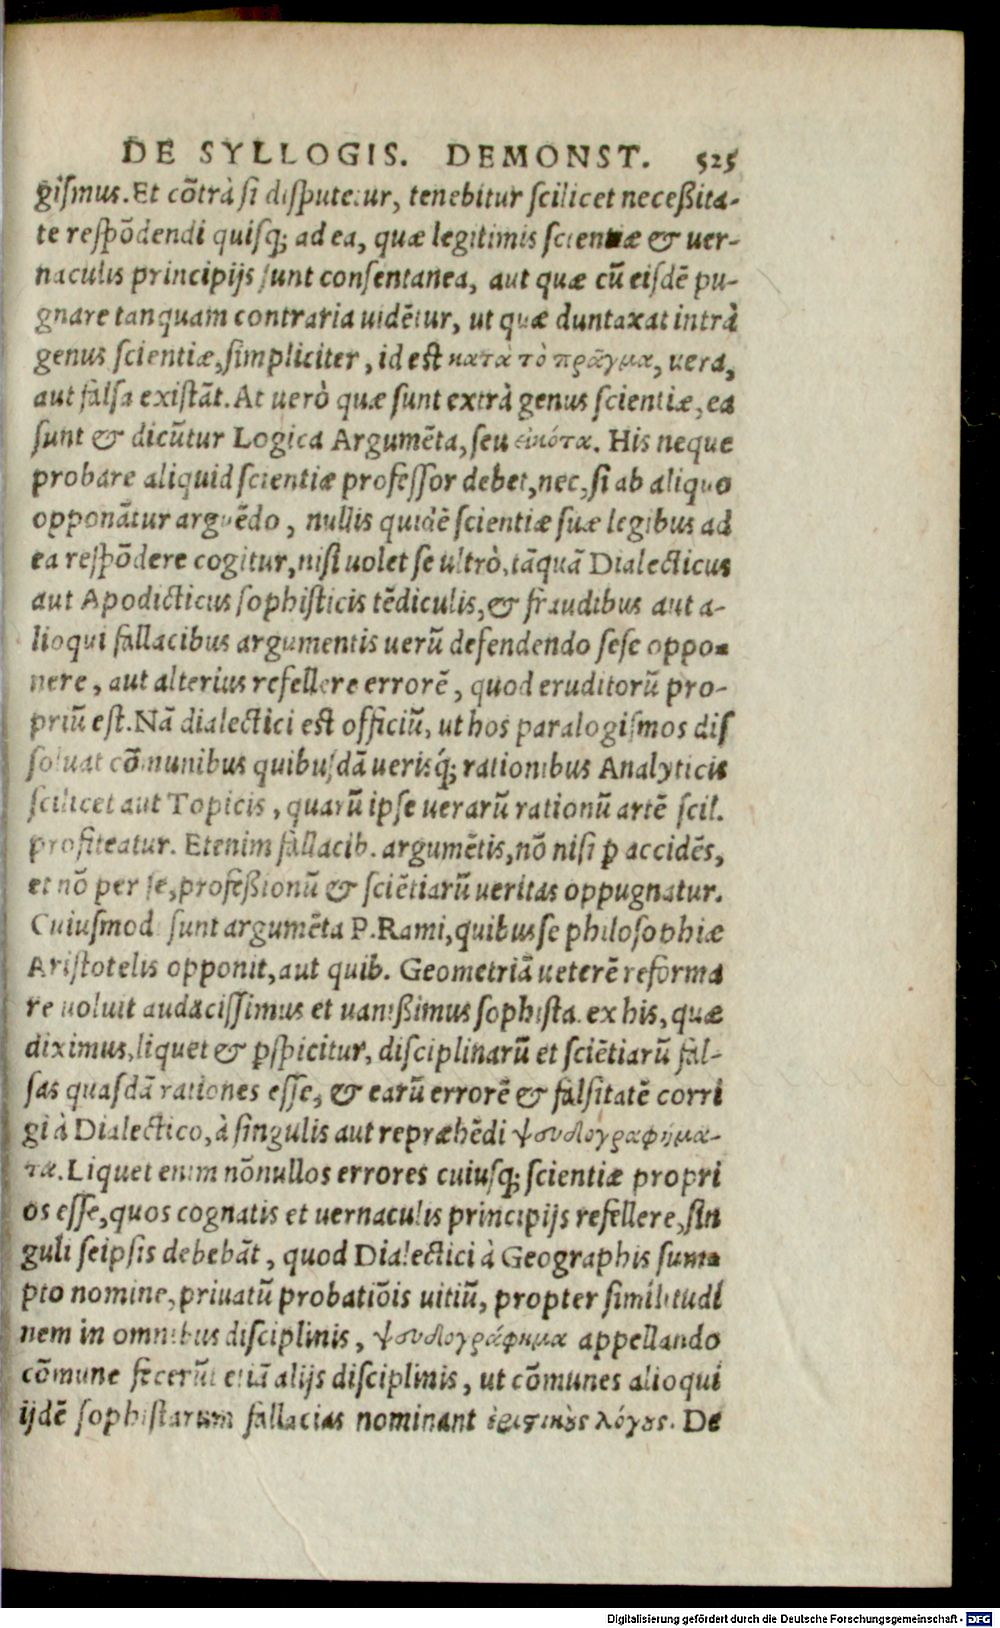 DE SYLLOGIS. DEMONST. 525
giſmus. Et cõtrà ſi diſputetur, tenebitur ſcilicet neceßita-
te reſpõdendi quiſq; ad ea, quæ legitimis ſcientiæ & uer-
naculis principijs ſunt conſentanea, aut quæ cũ eiſdẽ pu-
gnare tanquam contraria uidẽtur, ut quæ duntaxat intrà
genus ſcientiæ, ſimpliciter, id eſt κατὰ τὸ πρᾶγμα, uera,
aut falſa exiſtãt. At uerò quæ ſunt extrà genus ſcientiæ, ea
ſunt & dicũtur Logica Argumẽta, ſeu εἰκότα. His neque
probare aliquid ſcientiæ profeſſor debet, nec, ſi ab aliquo
opponãtur arguẽdo, nullis quidẽ ſcientiæ ſuæ legibus ad
ea reſpõdere cogitur, niſi uolet ſe ultrò, tãquã Dialecticus
aut Apodicticus ſophiſticis tẽdiculis, & fraudibus aut a-
lioqui fallacibus argumentis uerũ defendendo ſeſe oppo-
nere, aut alterius refellere errorẽ, quod eruditorũ pro-
priũ eſt. Nã dialectici eſt officiũ, ut hos paralogiſmos diſ
ſoluat cõmunibus quibuſdã uerisq́; rationibus Analyticis
ſcilicet aut Topicis, quarũ ipſe uerarũ rationũ artẽ ſcil.
profiteatur. Etenim fallacib. argumẽtis, nõ niſi ꝑ accidẽs,
et nõ per ſe, profeßionũ & ſciẽtiarũ ueritas oppugnatur.
Cuiuſmodi ſunt argumẽta P. Rami, quibus ſe philoſophiæ
Ariſtotelis opponit, aut quib. Geometriã ueterẽ reforma
re uoluit audaciſſimus et uanißimus ſophiſta. ex his, quæ
diximus, liquet & ꝑſpicitur, diſciplinarũ et ſciẽtiarũ fal-
ſas quaſdã rationes eſſe, & earũ errorẽ & falſitatẽ corri
gi à Dialectico, à ſingulis aut repræhẽdi ψευδογραφήμα-
τα. Liquet enim nõnullos errores cuiuſq; ſcientiæ propri
os eſſe, quos cognatis et uernaculis principijs refellere, ſin
guli ſeipſis debebãt, quod Dialectici à Geographis ſum-
pto nomine, priuatũ probatiõis uitiũ, propter ſimilitudi
nem in omnibus diſciplinis, ψευδογράφημα appellando
cõmune fecerũt etiã alijs diſciplinis, ut cõmunes alioqui
ijdẽ ſophiſtarum fallacias nominant ἐριστικοὺς λόγους. De
Digitalisierung gefördert durch die Deutsche Forschungsgemeinschaft - DFG